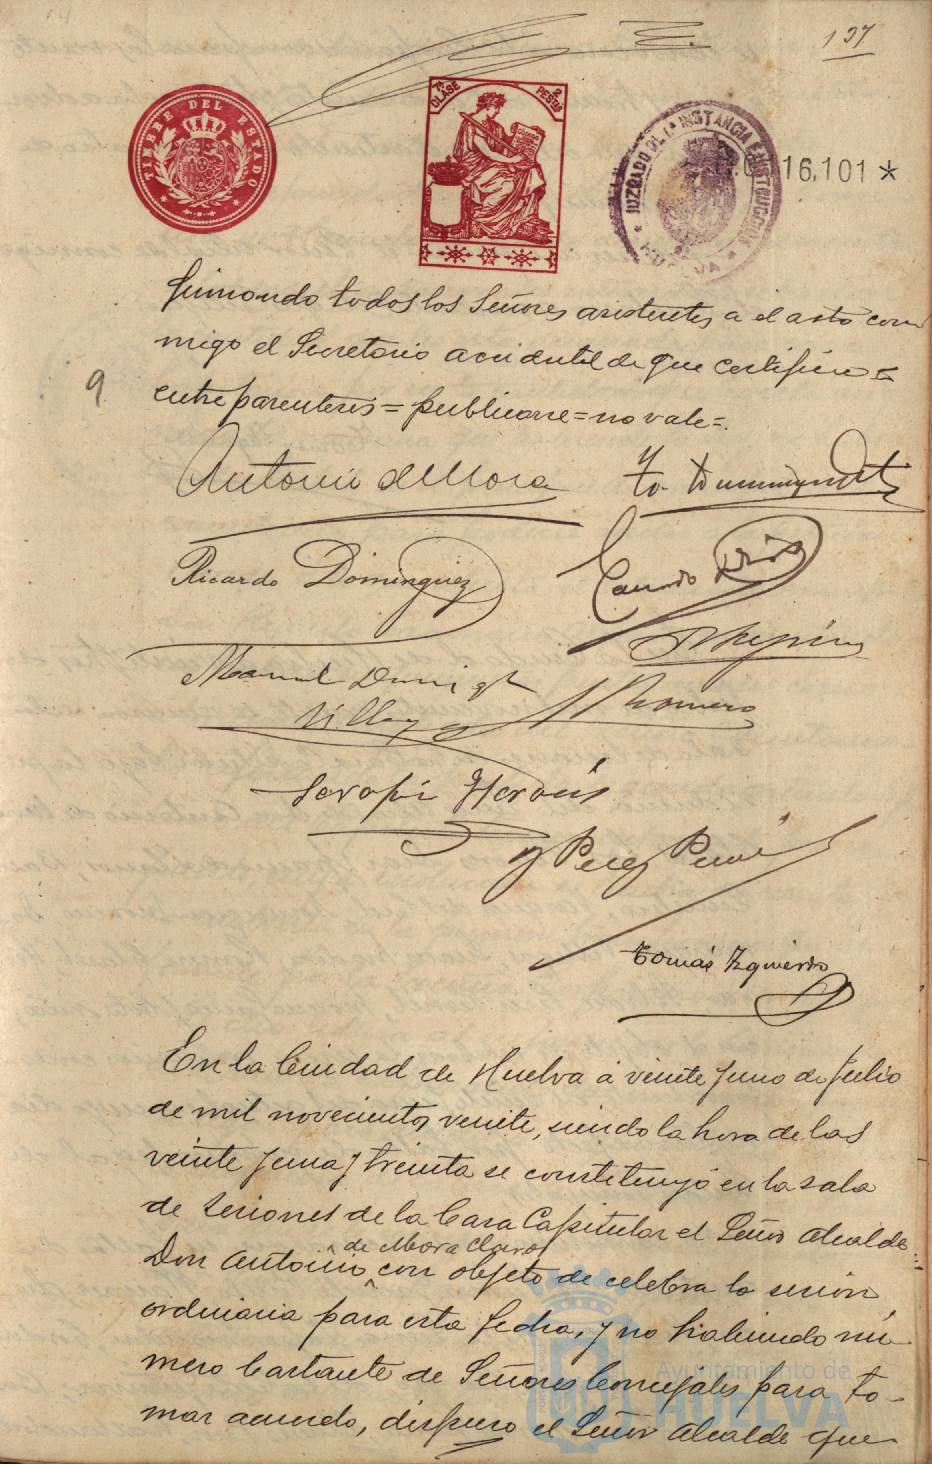 137
TIMBRE DEL ESTADO
7ª CLASE 2 PESTAS
JUZGADO DE 1ª INSTANCIA E INSTRUCCION
HUELVA
16,101 *
firmando todos los Señores asistentes a el acto con
migo el Secretario accidental de que certifico =
9
entre parentesis = publicarse = no vale =.
Antonio de Mora
Ricardo Dominguez
Manuel Domingz
Villa y Romero
Serafin
y Perez
Tomás Izquierdo
En la Ciudad de Huelva á veinte y uno de Julio
de mil novecientos veinte, siendo la hora de las
veinte y una y treinta se constituyó en la sala
de sesiones de la Casa Capitular el Señor Alcalde
de Mora Claros
Don Antonio con objeto de celebra la sesion
ordinaria para esta fecha, y no habiendo nú
mero bastante de Señores Concejales para to-
mar acuerdo, dispuso el Señor Alcalde que
Ayuntamiento de
HUELVA